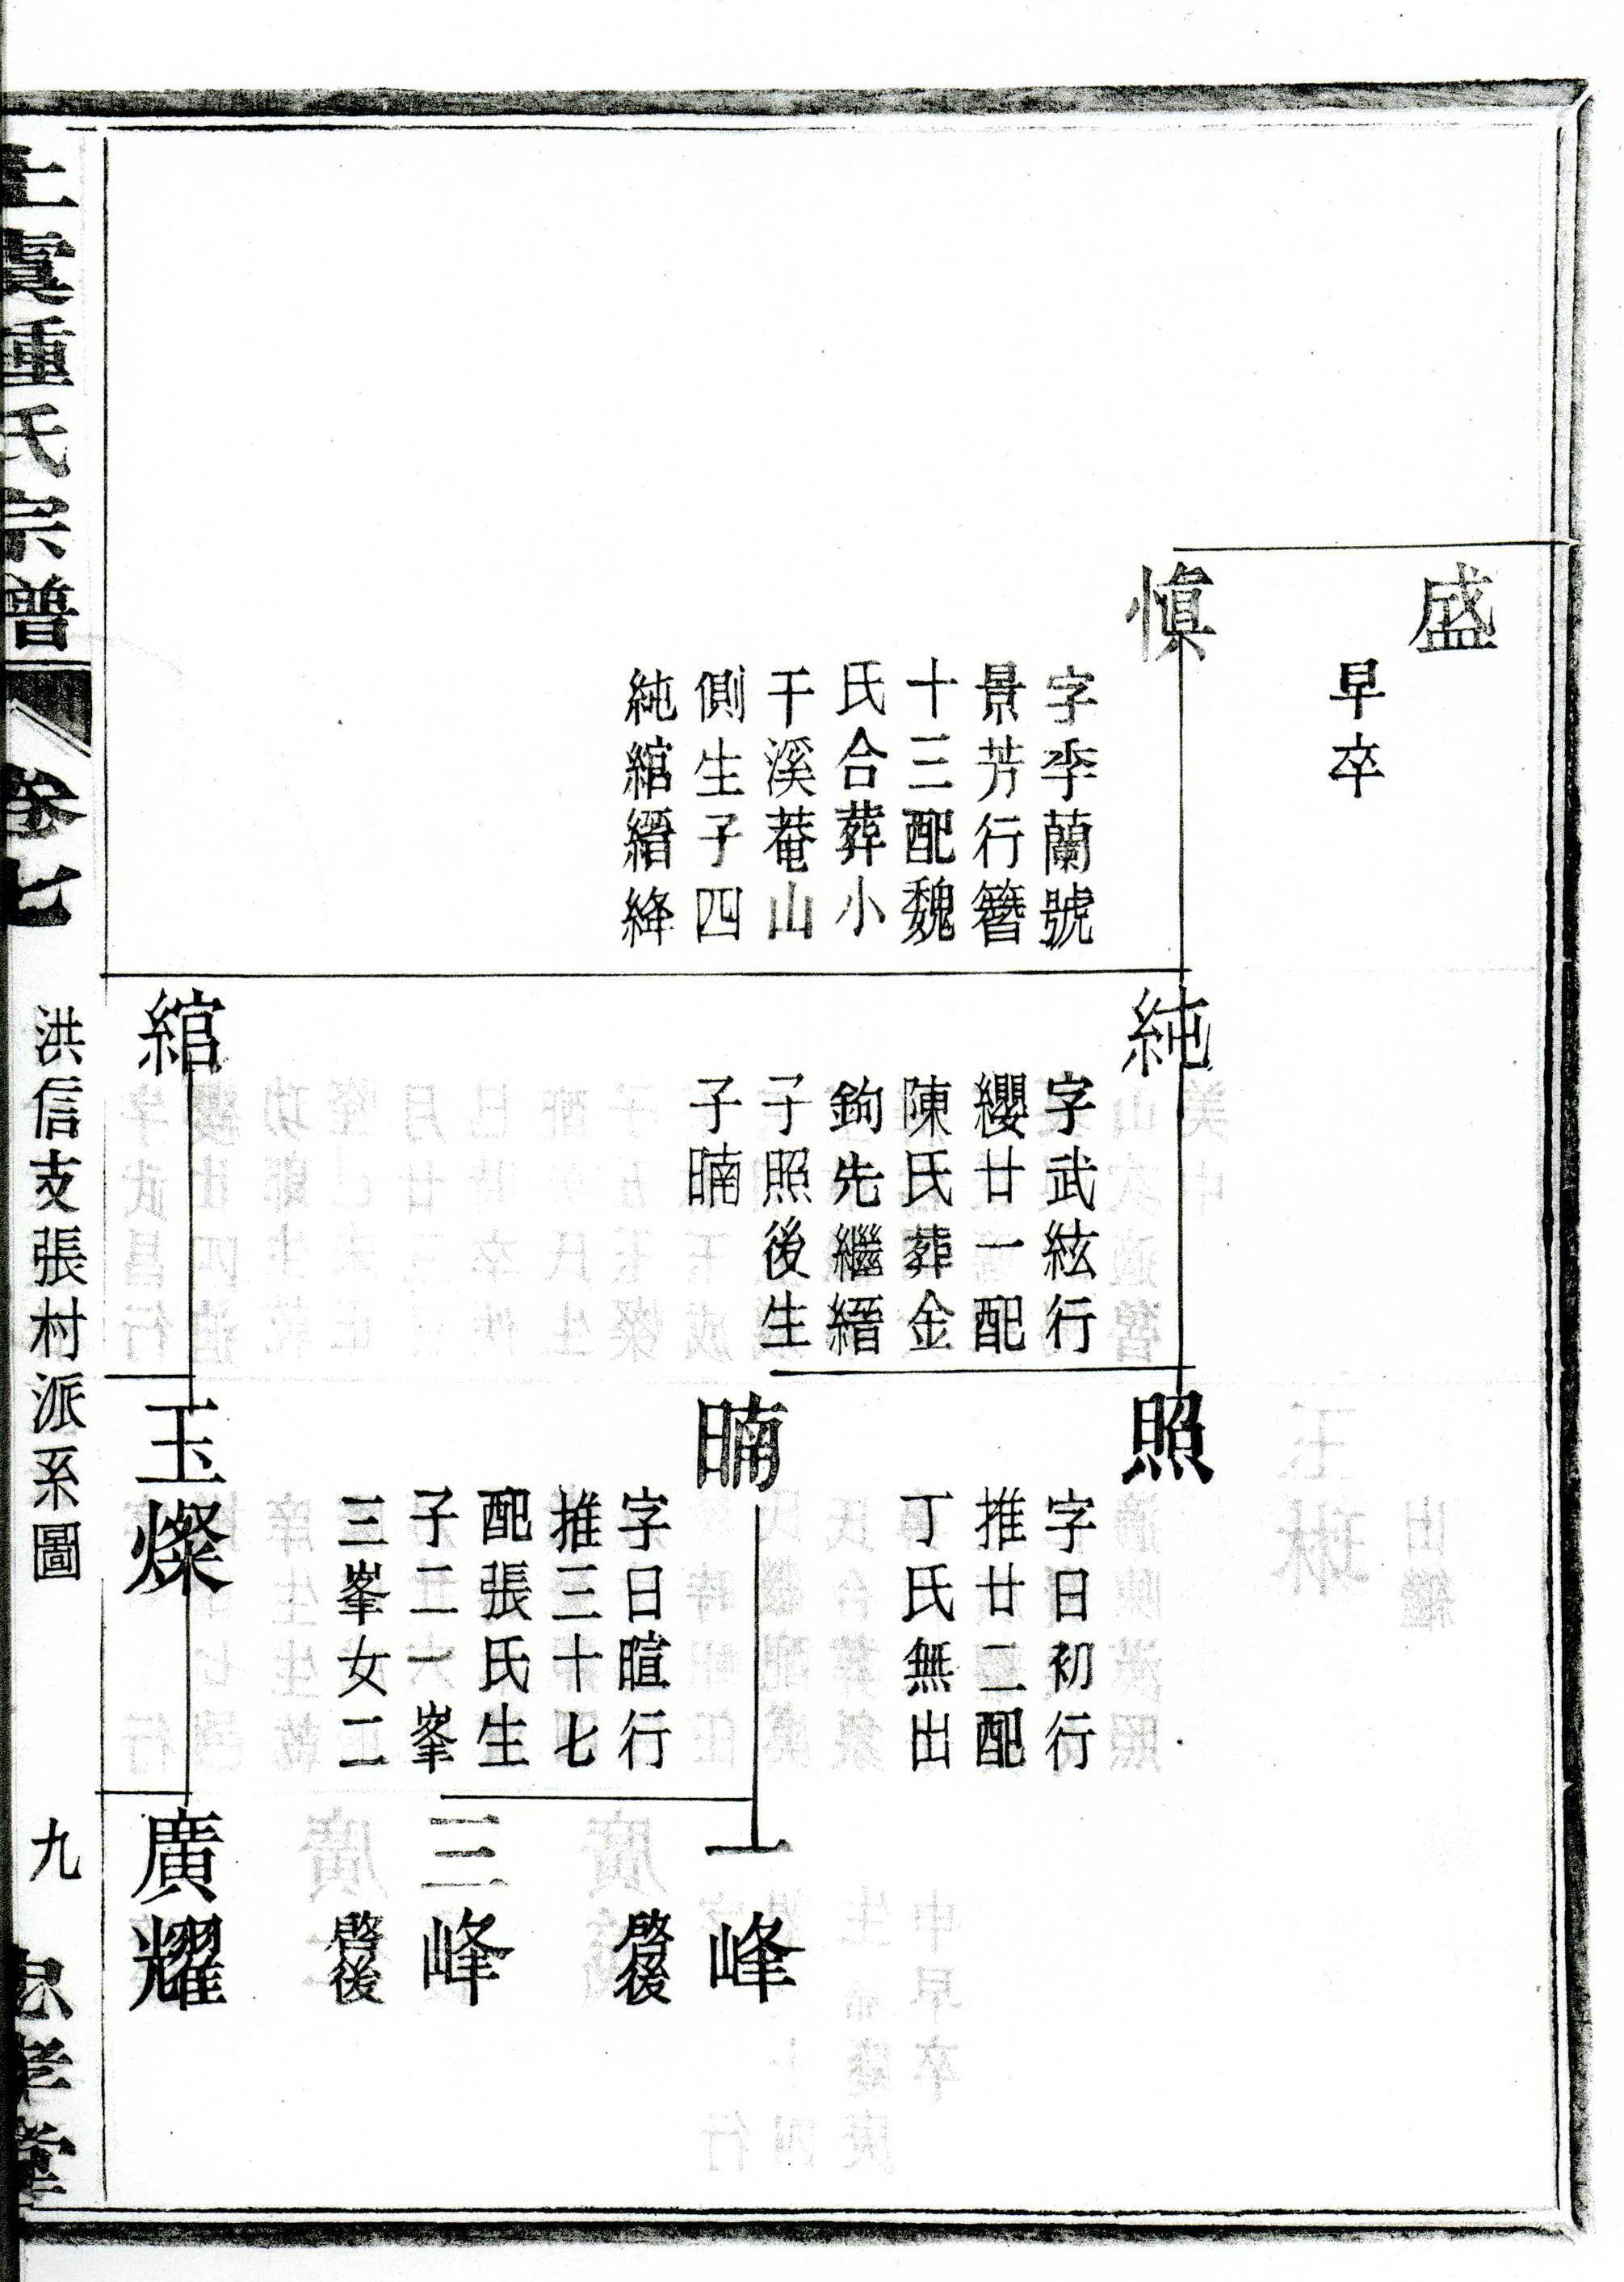 盛
早卒
慎
字季蘭號
景芳行簪
十三配魏
氏合葬小
干溪菴山
側生子四
純綰縉絳
純
字武絃行
纓廿一配
陳氏葬金
鉤先繼縉
子照後生
子暔
綰
照
字日初行
推廿二配
丁氏無出
暔
字日暄行
推三十七
配張氏生
子二一峯
三峯女二
玉燦
一峰
啓後
三峰
啓後
廣耀
上虞種氏宗譜
卷七
洪信支張村派系圖
九
忠孝堂